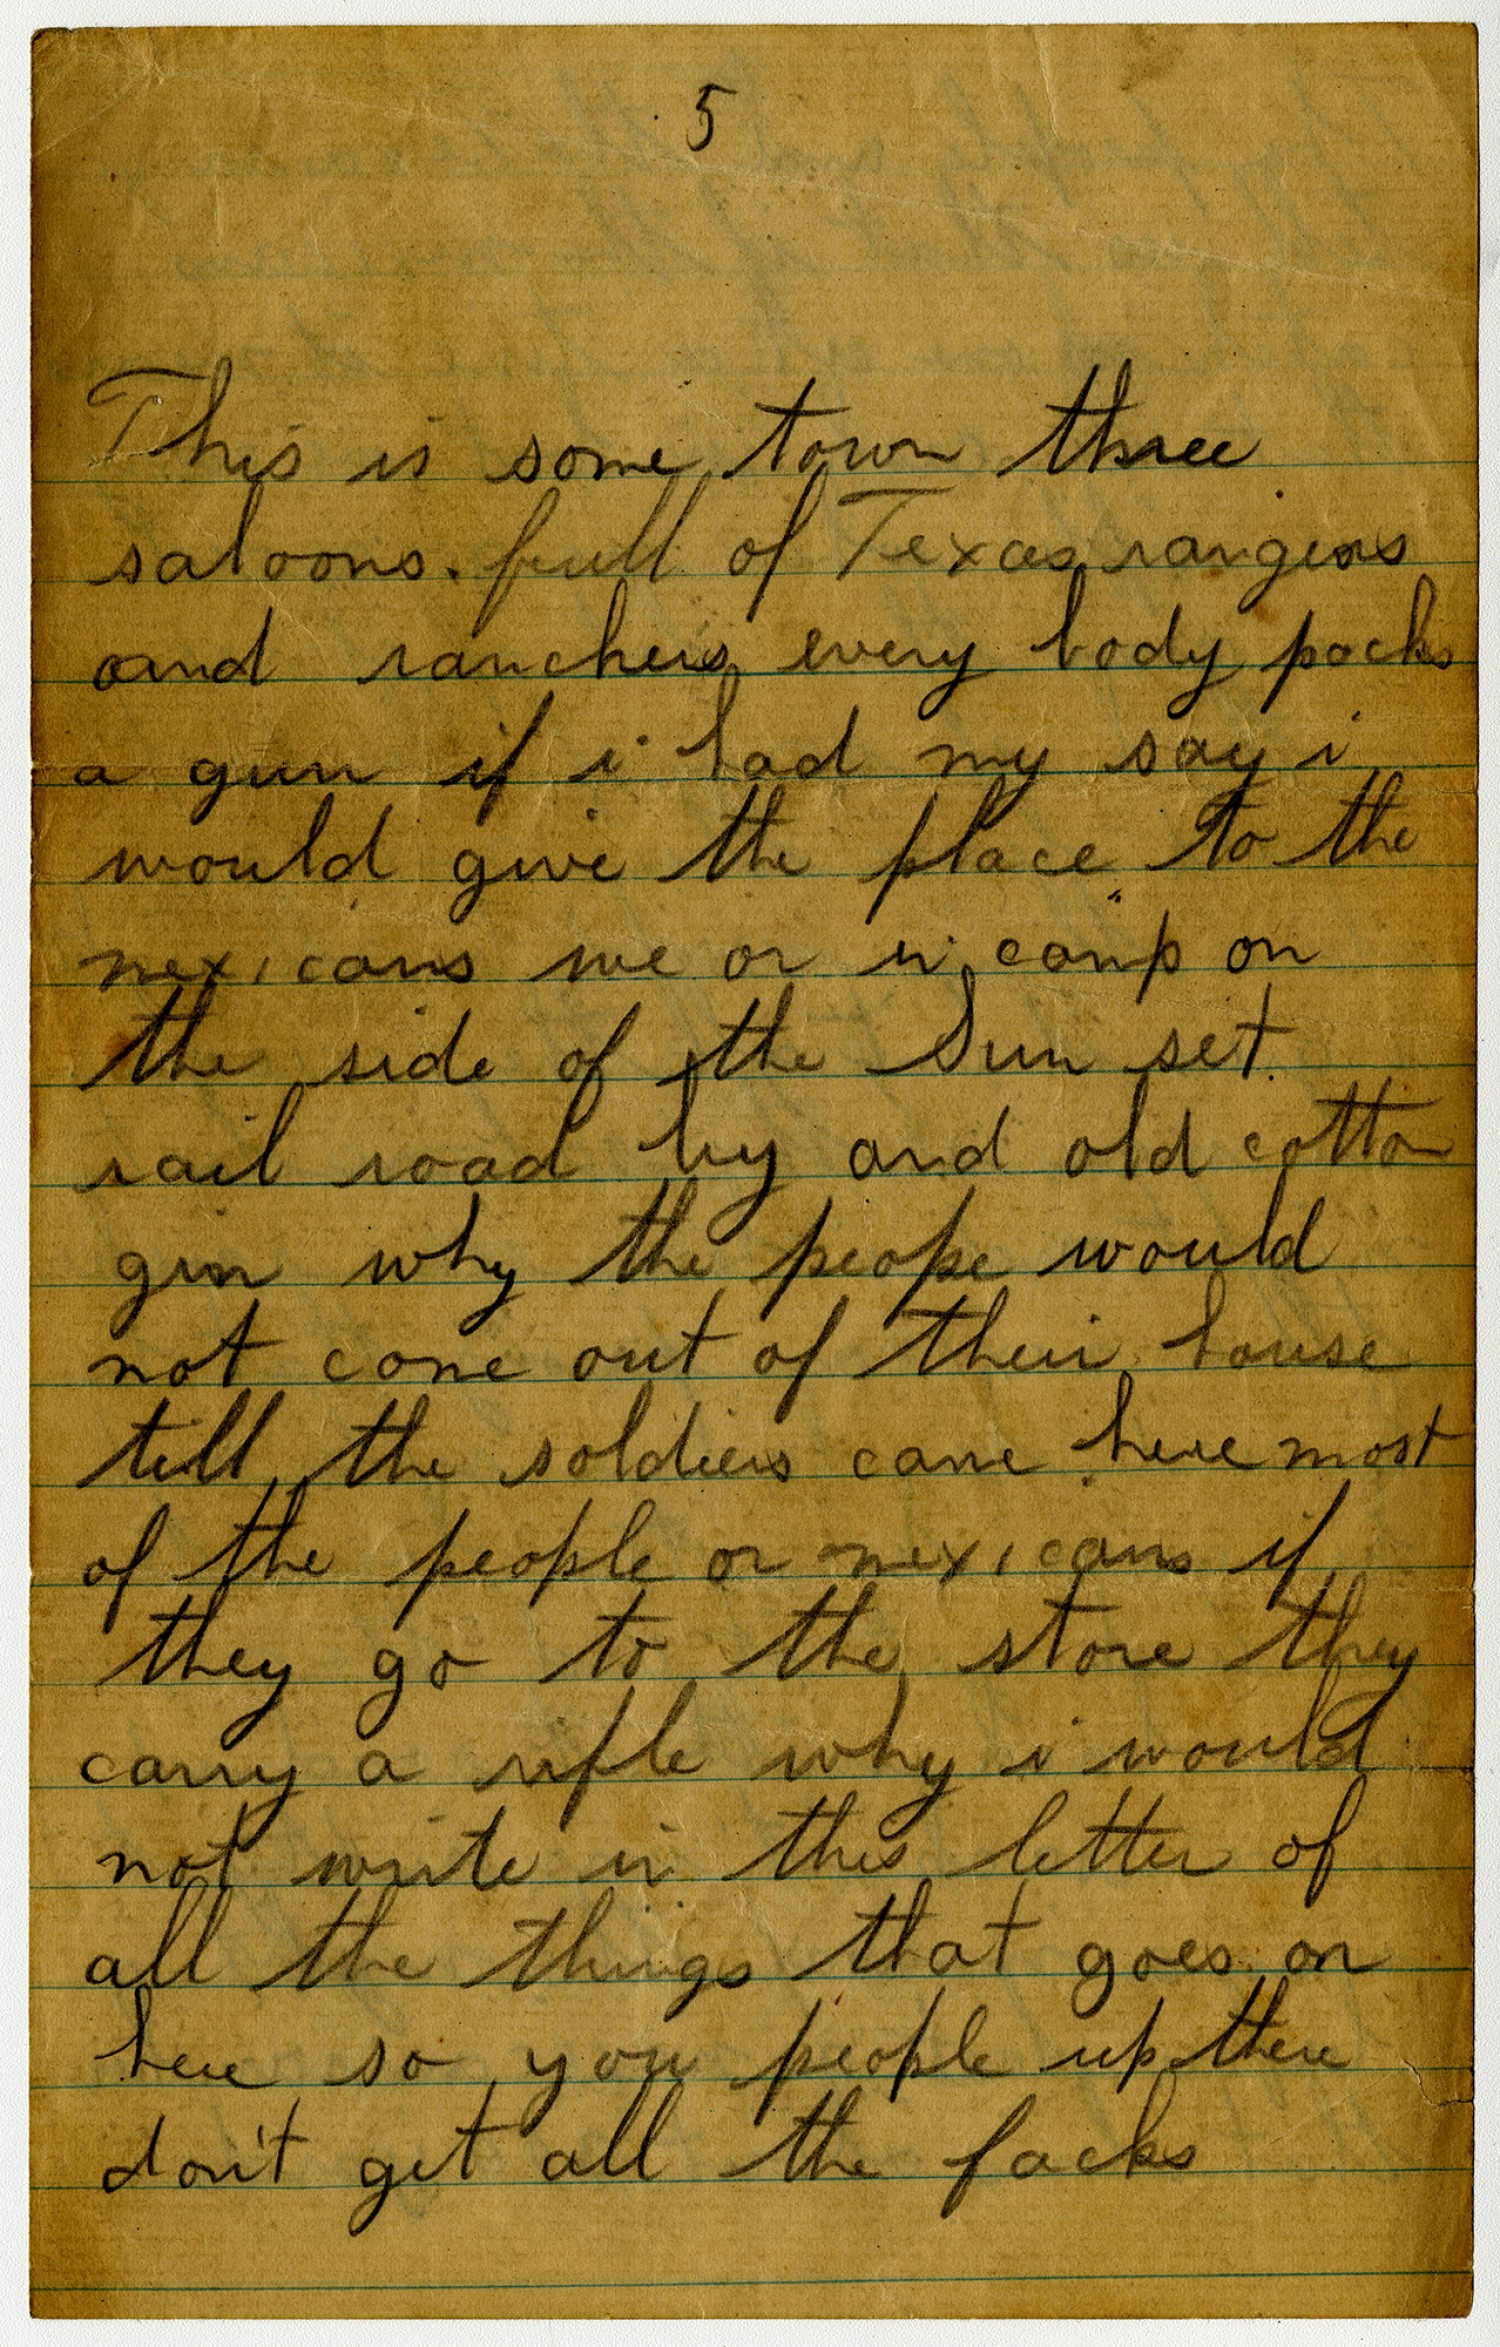 5
This is some town three
saloons. full of Texas rangers
and ranchers every body packs
a gun if i had my say i
would give the place to the
mexicans we or in camp on
the side of the Sun set
rail road by and old cotton
gin why the peope would
not come out of their house
till the soldiers came here most
of the people or mexicans if
they go to the store they
carry a rifle why i would
not write in this letter of
all the things that goes on
here so you people up there
don't get all the facks